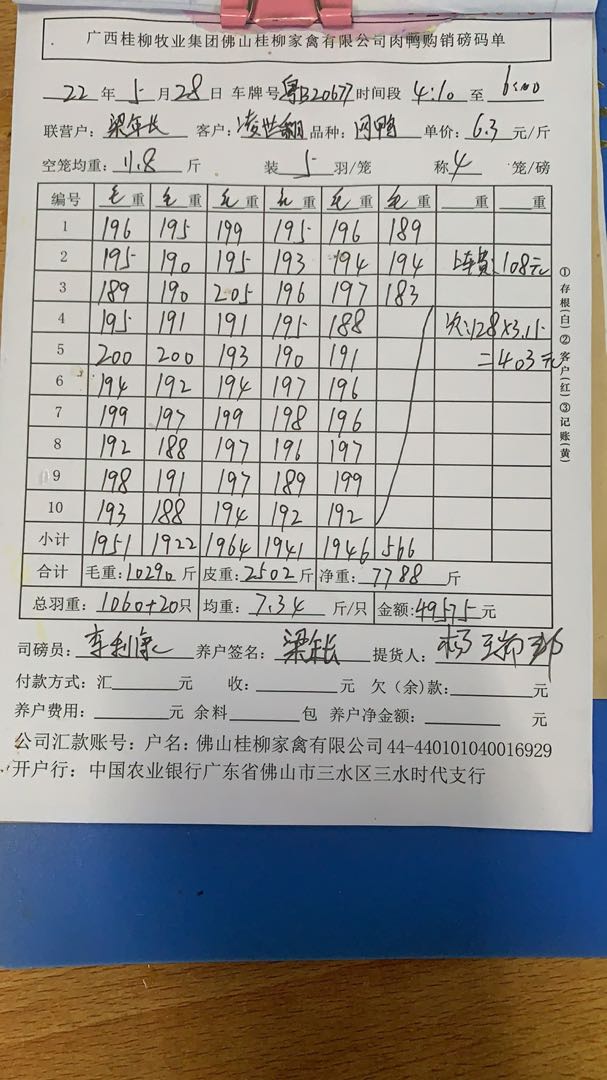 广西桂柳牧业集团佛山桂柳家禽有限公司肉鸭购销磅码单
22年5月28日 车牌号粤B20677时间段4:10至6:00
联营户：梁年长 客户： 品种： 单价：6.3元/斤
空笼均重：11.8斤 装5羽/笼 称4笼/磅
编号 毛重 毛重 毛重 毛重 毛重 毛重 重 重
1 196 195 199 195 196 189
2 195 190 195 193 194 194 上车费：108元
3 189 190 205 196 197 183
4 195 191 191 195 188 次：128×3.15
5 200 200 193 190 191 =403元
6 194 192 194 197 196
7 199 197 199 198 196
8 192 188 197 196 197
9 198 191 197 189 199
10 193 188 194 192 192
小计 1951 1922 1964 1941 1946 566
合计 毛重：10290斤 皮重：2502斤 净重：7788斤
总羽重：1060+20只 均重：7.34斤/只 金额：49575元
司磅员： 养户签名：梁年长 提货人：
付款方式：汇 元 收： 元 欠（余）款： 元
养户费用： 元 余料 包 养户净金额： 元
公司汇款账号：户名：佛山桂柳家禽有限公司44-440101040016929
开户行：中国农业银行广东省佛山市三水区三水时代支行
①存根(白)②客户(红)③记账(黄)